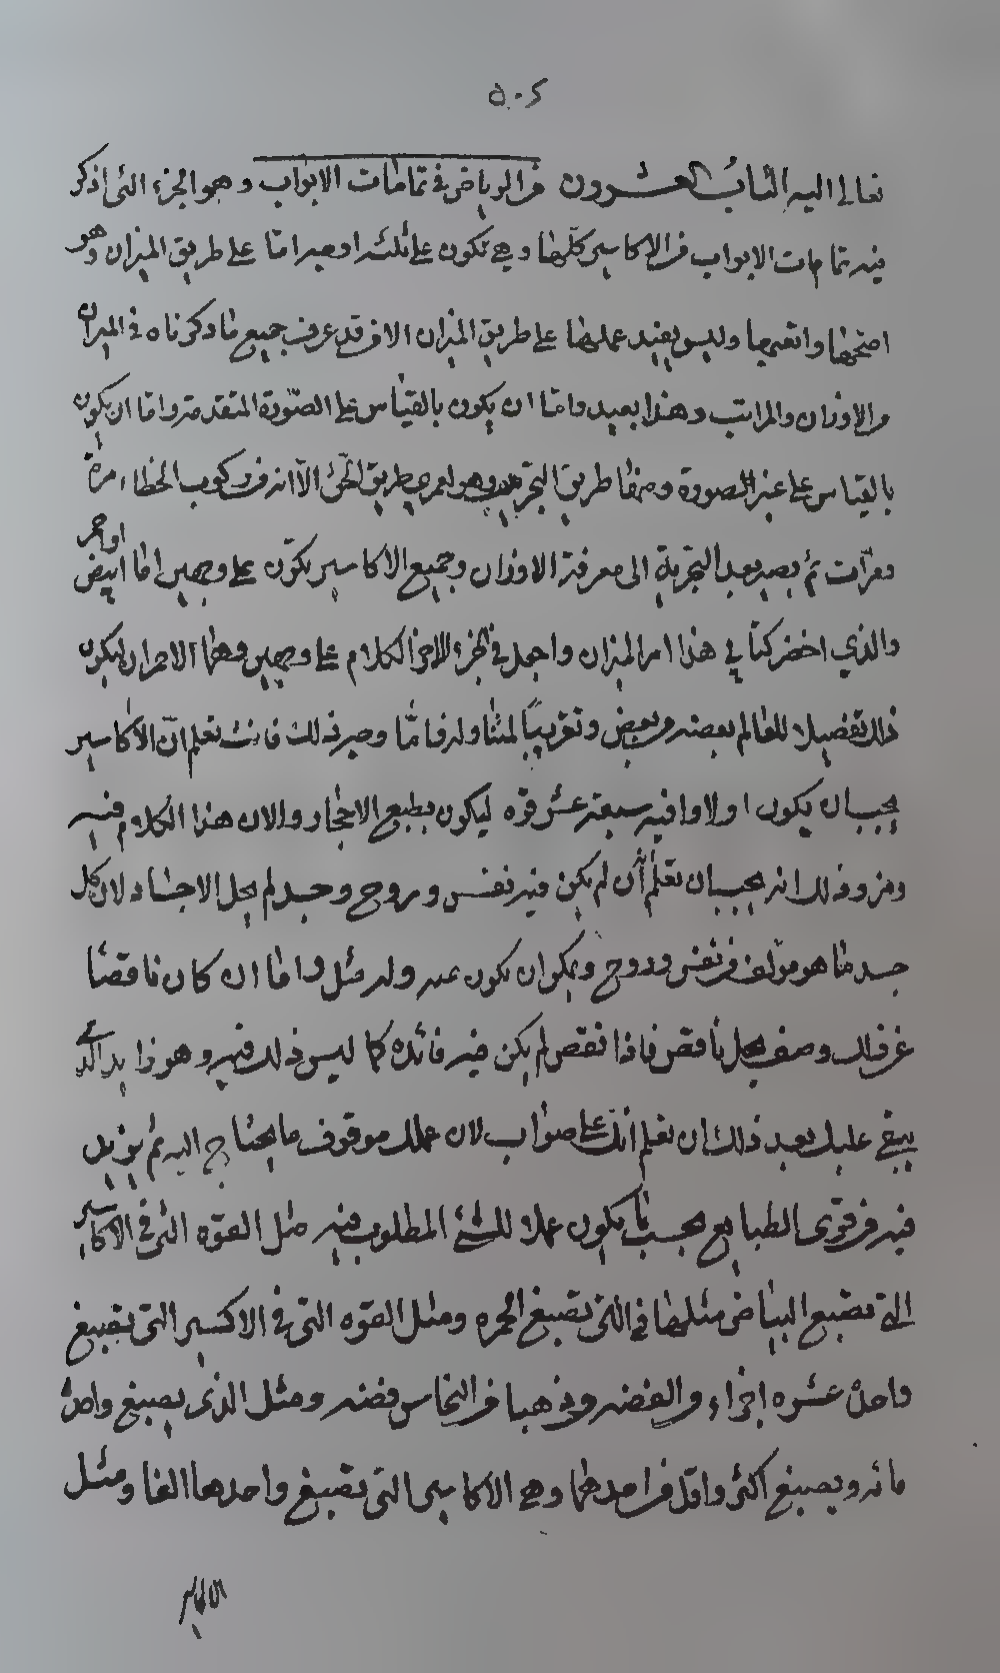 ٥٠٤
تعالى اليه الباب العشرون من الرياض في تمامات الابواب وهو الجزء الذى اذكر
فيه تمامات الابواب من الاكاسير كلّها وهى تكون على ثلثه اوجه امّا على طريق الميزان وهو
اصحها واتعبها وليس يفيد عملها على طريق الميزان الا من قد عرف جميع ما ذكرناه فى الميزان
من الاوزان والمراتب وهذا بعيد وامّا ان يكون بالقياس على الصّورة المتقدمة وامّا ان يكون
بالقياس على غير الصورة وضمنا طريق التجربه وهو لعمرى طريق الحق الّا انه فى ركوب الخطاء مرة
ومرّات ثم يصير بعد التجربة الى معرفة الاوزان وجميع الاكاسير تكون على وجهين امّا ابيض او احمر
والذي اختر كنا في هذا امر الميزان واجعل فى الجزء الاخر الكلام على وجهين وهما الاحمران ليكون
ذلك تفصيلا للعالم بعضه من بعض وتقريبًا لمتناوله فامّا وجه ذلك فانت تعلم انّ الاكاسير
يجب ان يكون اولا وافيه سبعة عشر قوه ليكون بطبع الاحجار والان هذا الكلام فيه
رمز وذلك انه يجب ان تعلم أن لم يكن فيه نفس وروح وجسد لم يحل الاجساد لان كل
جسد ما هو مؤلف من نفس وروح ويمكن ان يكون عنه وله مثل واما ان كان ناقصا
عن ذلك وصف بحل ناقص فاذا نقص لم يكن فيه فائده كما ليس ذلك فيه وهو ذا يدالّك
ينبغي عليك بعد ذلك ان تعلم انّك على صواب لان عملك موقوف ما يحتاج اليه ثم يزيد
فيه من قوى الطبايع بحسب ما يكون عملا للشئ المطلوب فيه مثل القوه التى فى الاكاسير
التى تصبغ البياض مثلها فى التى تصبغ الحمره ومثل القوه التى فى الاكسير التى تصبغ
واحدٌ عشره اجزاء من الفضه وذهبا من النحاس فضه ومثل الذى يصبغ واحدٌ
مائه ويصبغ اكثر واقل من احدهما وهى الاكاسير التى تصبغ واحدها الفا ومثل
الاكاسير